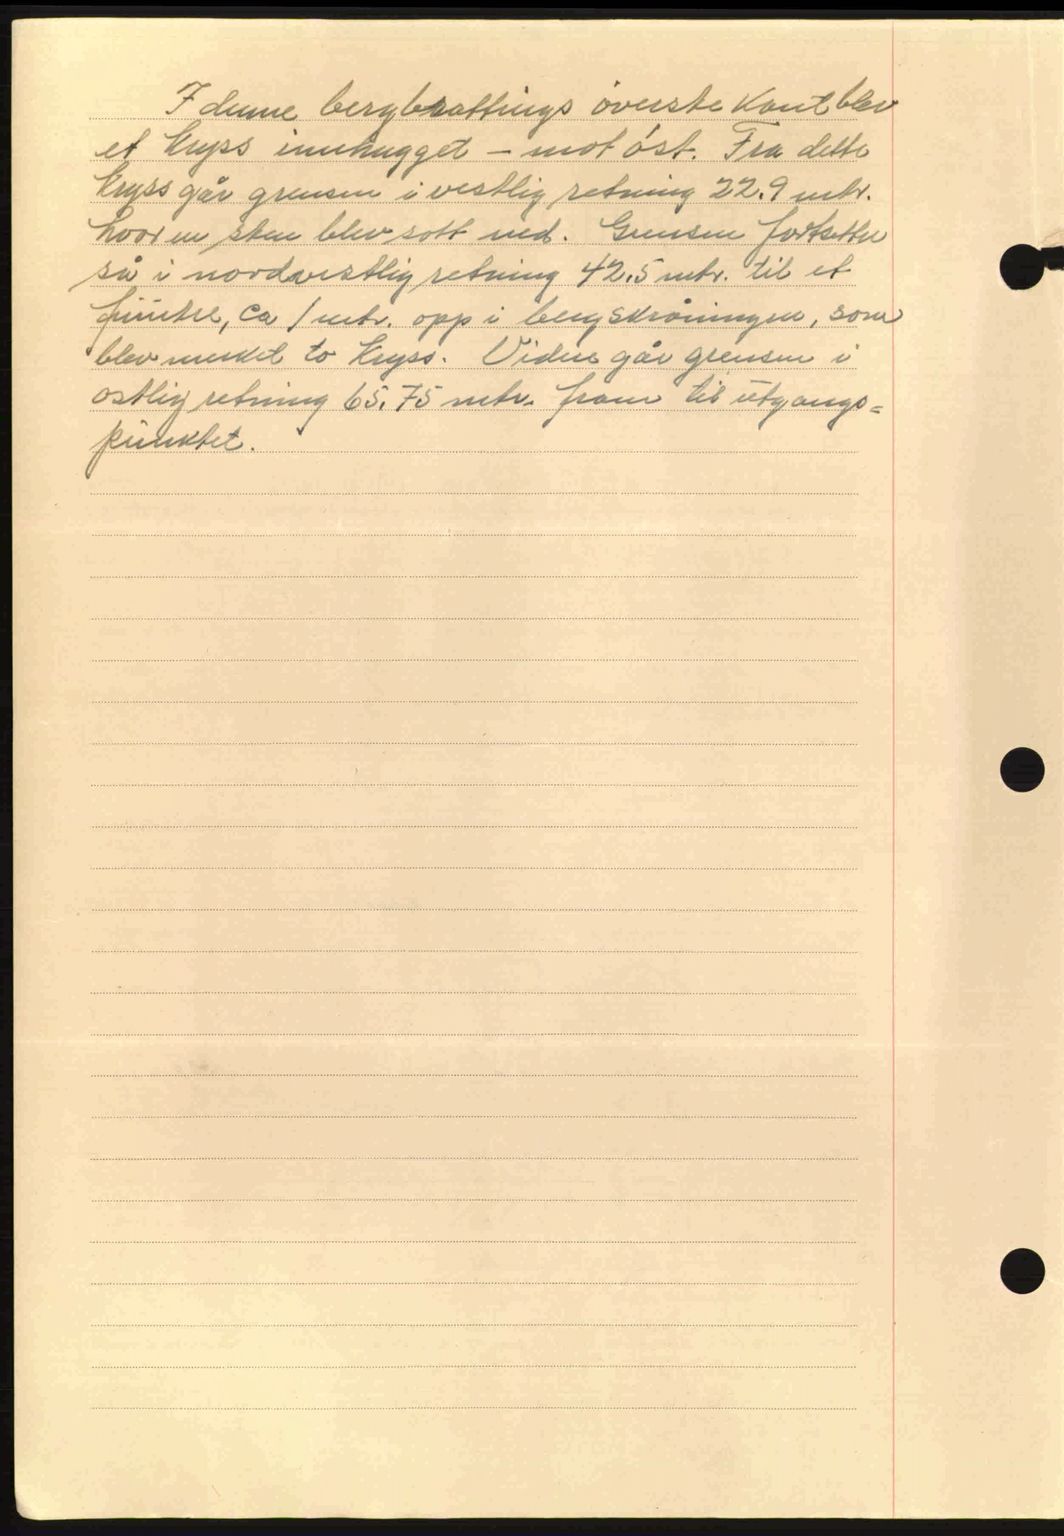 I denne bergbrattings överste Kant blev
et Kryss innhugget – mot öst. Fra dette
Kryss går grensen i vestlig retning 22.9 mtr.
hvor en sten blev satt ned. Grensen fortsetter
så i nordvestlig retning 42.5 mtr. til et
punkt, ca 1 mtr. opp i bergskråningen, som
blev merket to Kryss. Videre går grensen i
østlig retning 65.75 mtr. fram til utgangs=
punktet.